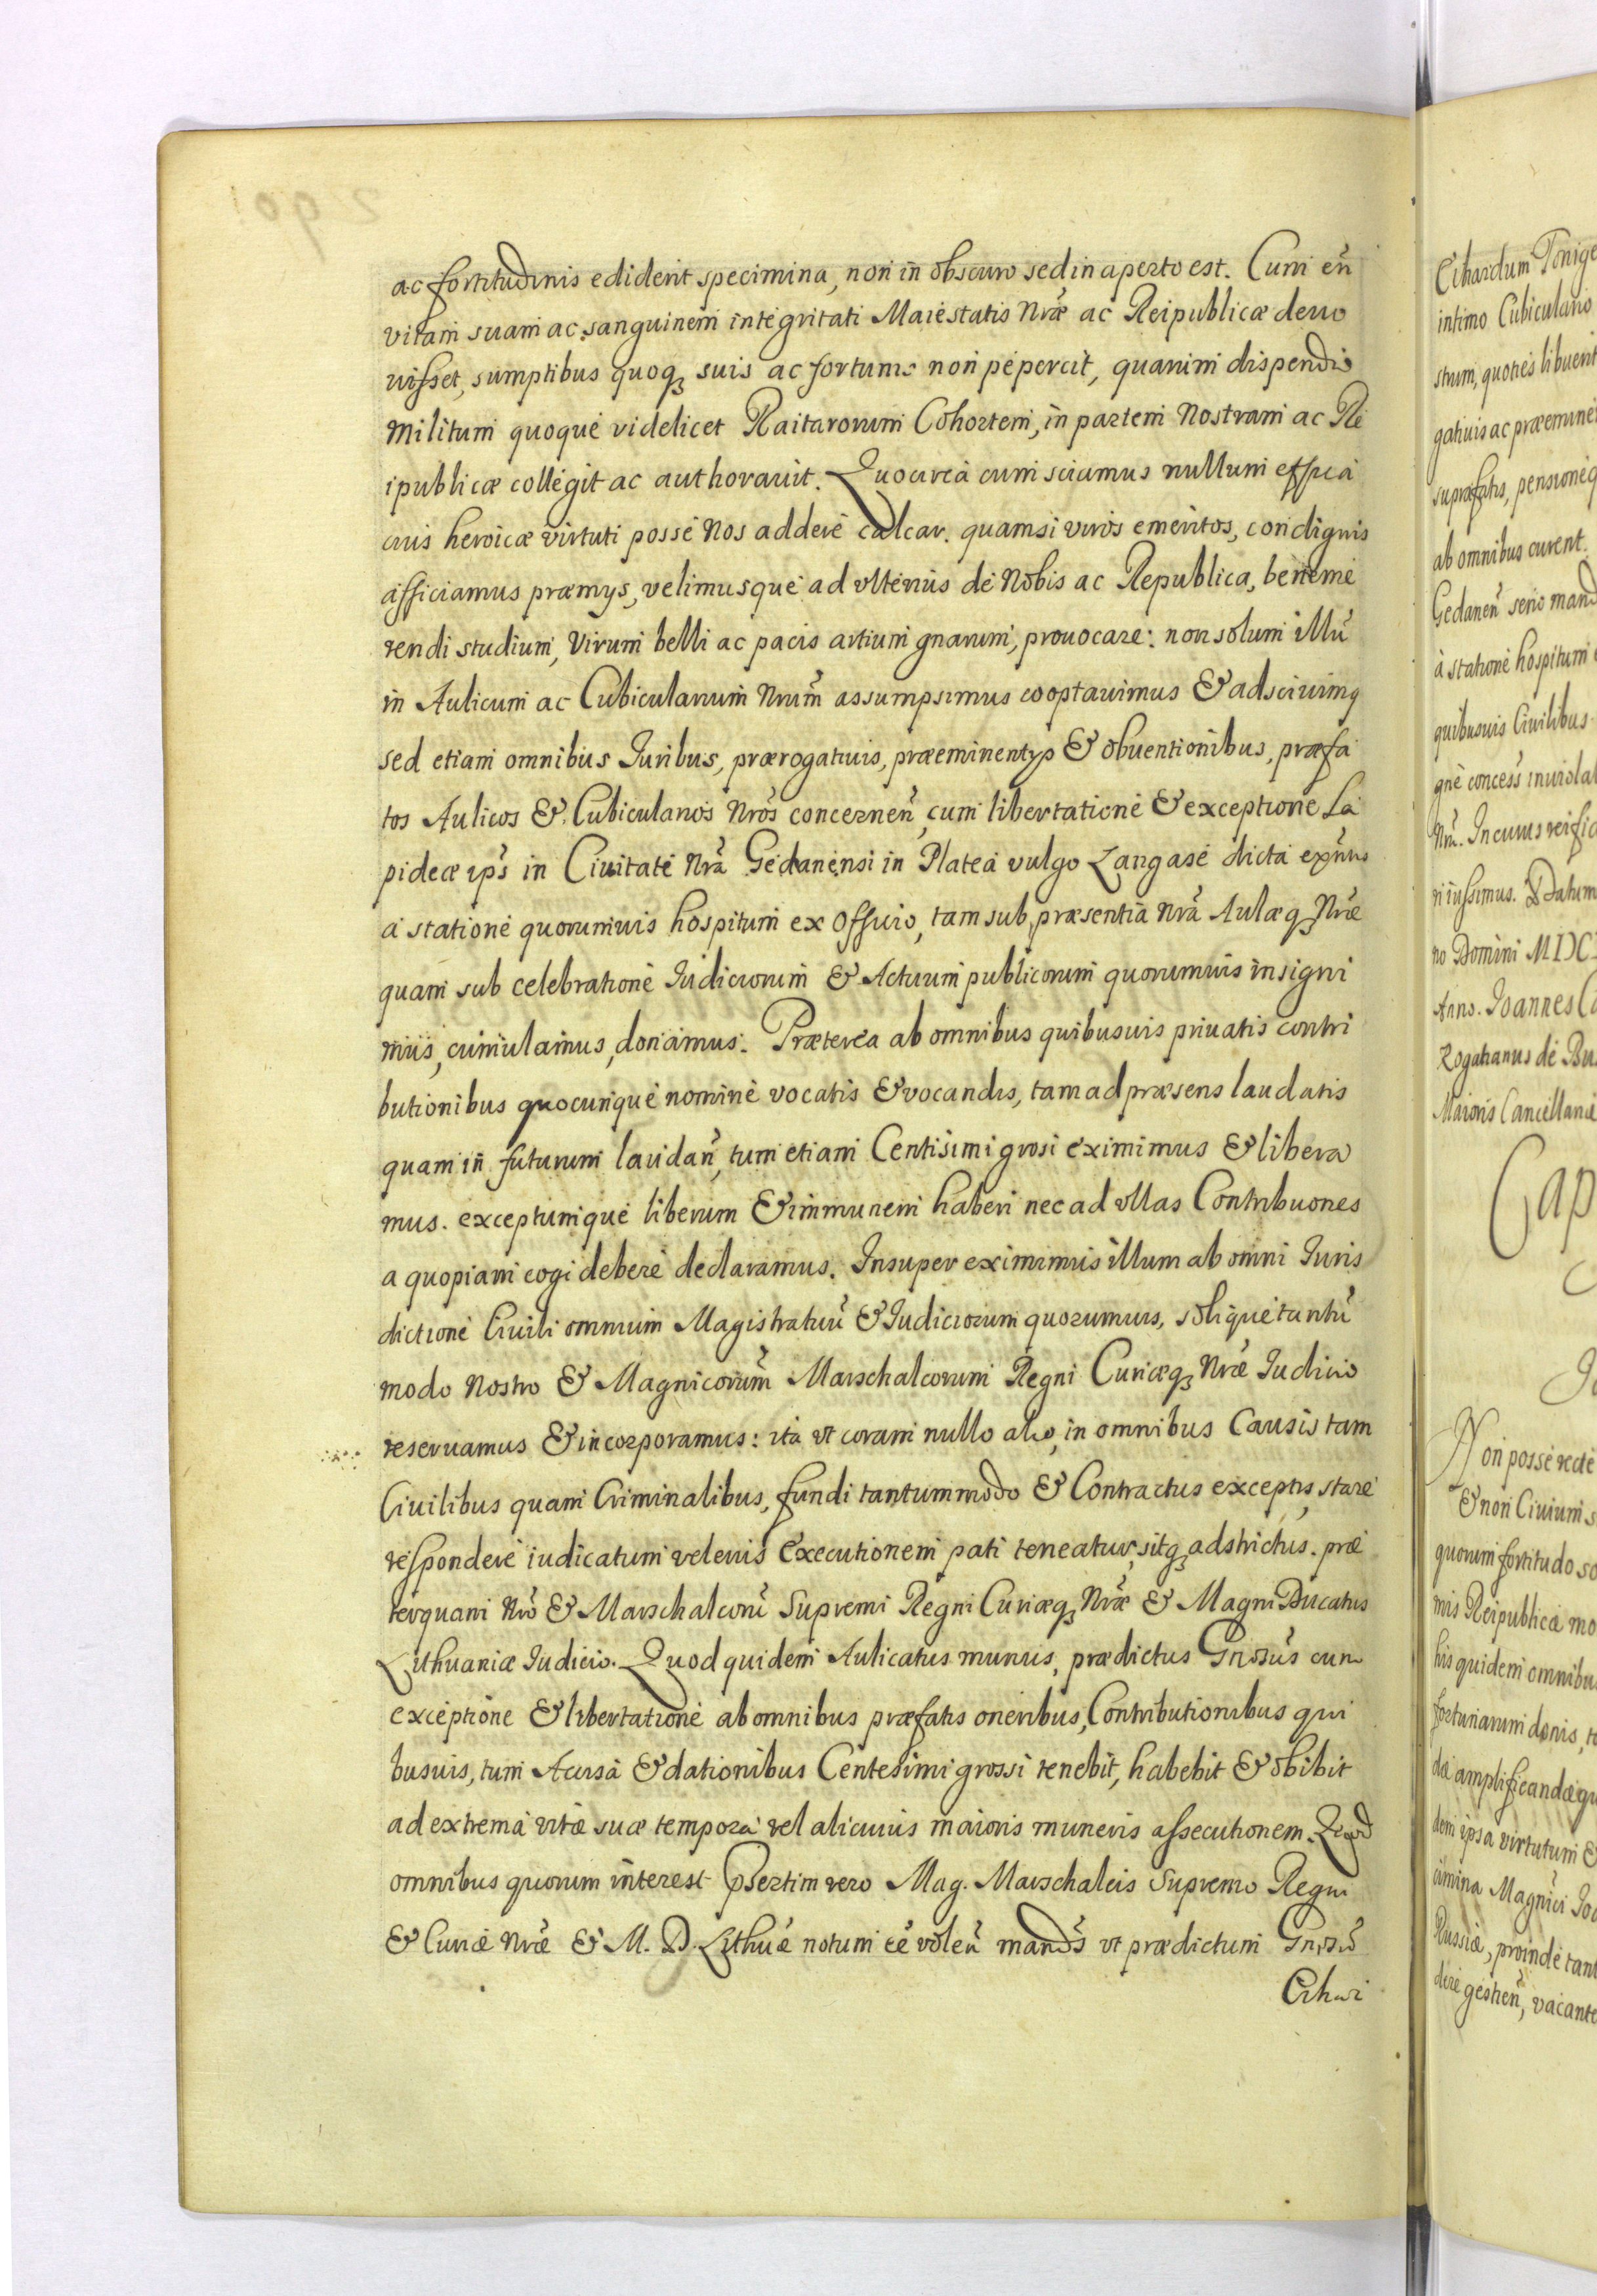 ac fortitudinis ediderit specimina, non in obscuro sed in aperto est. Cum eñ
vitam suam ac sanguinem integritati Maiestatis Nræ ac Reipublicæ deuo
uisset, sumptibus quoq suis ac fortunis non pepercit, quarum dispendio
Militum quoque videlicet Raitarorum Cohortem, in partem Nostram ac Re
ipublicæ collegit ac authorauit. Quocirca cum sciamus nullum effica
cius heroicæ virtuti posse Nos addere calcar. quam si viros emeritos, condignis
afficiamus præmys, velimusque ad vlterius de Nobis ac Republica, beneme
rendi studium, Virum belli ac pacis artium gnarum, prouocare: non solum illũ
in Aulicum ac Cubicularium Nrum̃ assumpsimus cooptauimus & adsciuimq
sed etiam omnibus Iuribus, prærogatiuis, præeminentys & obuentionibus, præfa
tos Aulicos & Cubicularios Nros̃ concerneñ, cum libertatione & exceptione La
pideæ ips̃ in Ciuitate Nrã Gedanensi in Platea vulgo Langase dicta
a statione quorumuis hospitum ex Officio, tam sub præsentia Nrã Aulæq Nræ
quam sub celebratione Iudiciorum & Actuum publicorum quorumuis insigni
mus, cumulamus, donamus. Præterea ab omnibus quibusuis priuatis contri
butionibus quocunque nomine vocatis & vocandis, tam ad præsens laudatis
quam in futurum laudañ, tum etiam Centisimi grosi eximimus & libera
mus. exceptumque liberum & immunem haberi nec ad vllas Contribuones
a quopiam cogi debere declaramus. Insuper eximimus illum ab omni Iuris
dictione Ciuili omnium Magistratuũ & Iudiciorum quorumuis, solique tantũ
modo Nostro & Magnicorum̃ Marschalcorum Regni Curiæq Nræ Iudicio
reseruamus & incorporamus: ita vt coram nullo alio, in omnibus Causis tam
Ciuilibus quam Criminalibus, fundi tantummodo & Contractus exceptis, stare
respondere iudicatum releuis Executionem pati teneatur, sitq adstrictus. præ
terquam Nrõ & Marschalcorũ Supremi Regni Curiæq Nræ & Magni Ducatus
Lithuaniæ Iudicio. Quod quidem Aulicatus munus, prædictus Gnosus̃ cum
exceptione & libertatione ab omnibus præfatis oneribus, Contributionibus qui
busuis, tum Accisa & dationibus Centesimi grossi tenebit, habebit & obibit
ad extrema vitæ suæ tempora vel alicuius maioris muneris assecutionem. Quod
omnibus quorum interest Psertim vero Mag. Marschalcis Supremo Regni
& Curiæ Nræ & M. D. Lithuæ notum eẽ voleñ mands̃ vt prædictum Gnosũ
Erhar
Erhardum
intimo Cubiculario
strum, quoties libuerit
gatiuis ac præemine
supræfatis, pensioneq
ab omnibus curent.
Gedaneñ serio mand
à statione hospitum
quibusuis Ciuilibus
gne concess̃ inuiolab
Nrũ. In cuius rei fid
ri iussimus. Datum
no Domini MDC
Anno. Joannes Ca
Rogatianus de
Maioris Cancellariæ
Cap
Non posse recte
& non Ciuium s
quorum fortitudo so
mis Reipublicæ mo
his quidem omnibu
fortunarum donis, t
dæ amplificandæ qu
dem ipsa virtutum &
cimina Magnici Joa
Russiæ, proinde tan
dere gestieñ, vacante